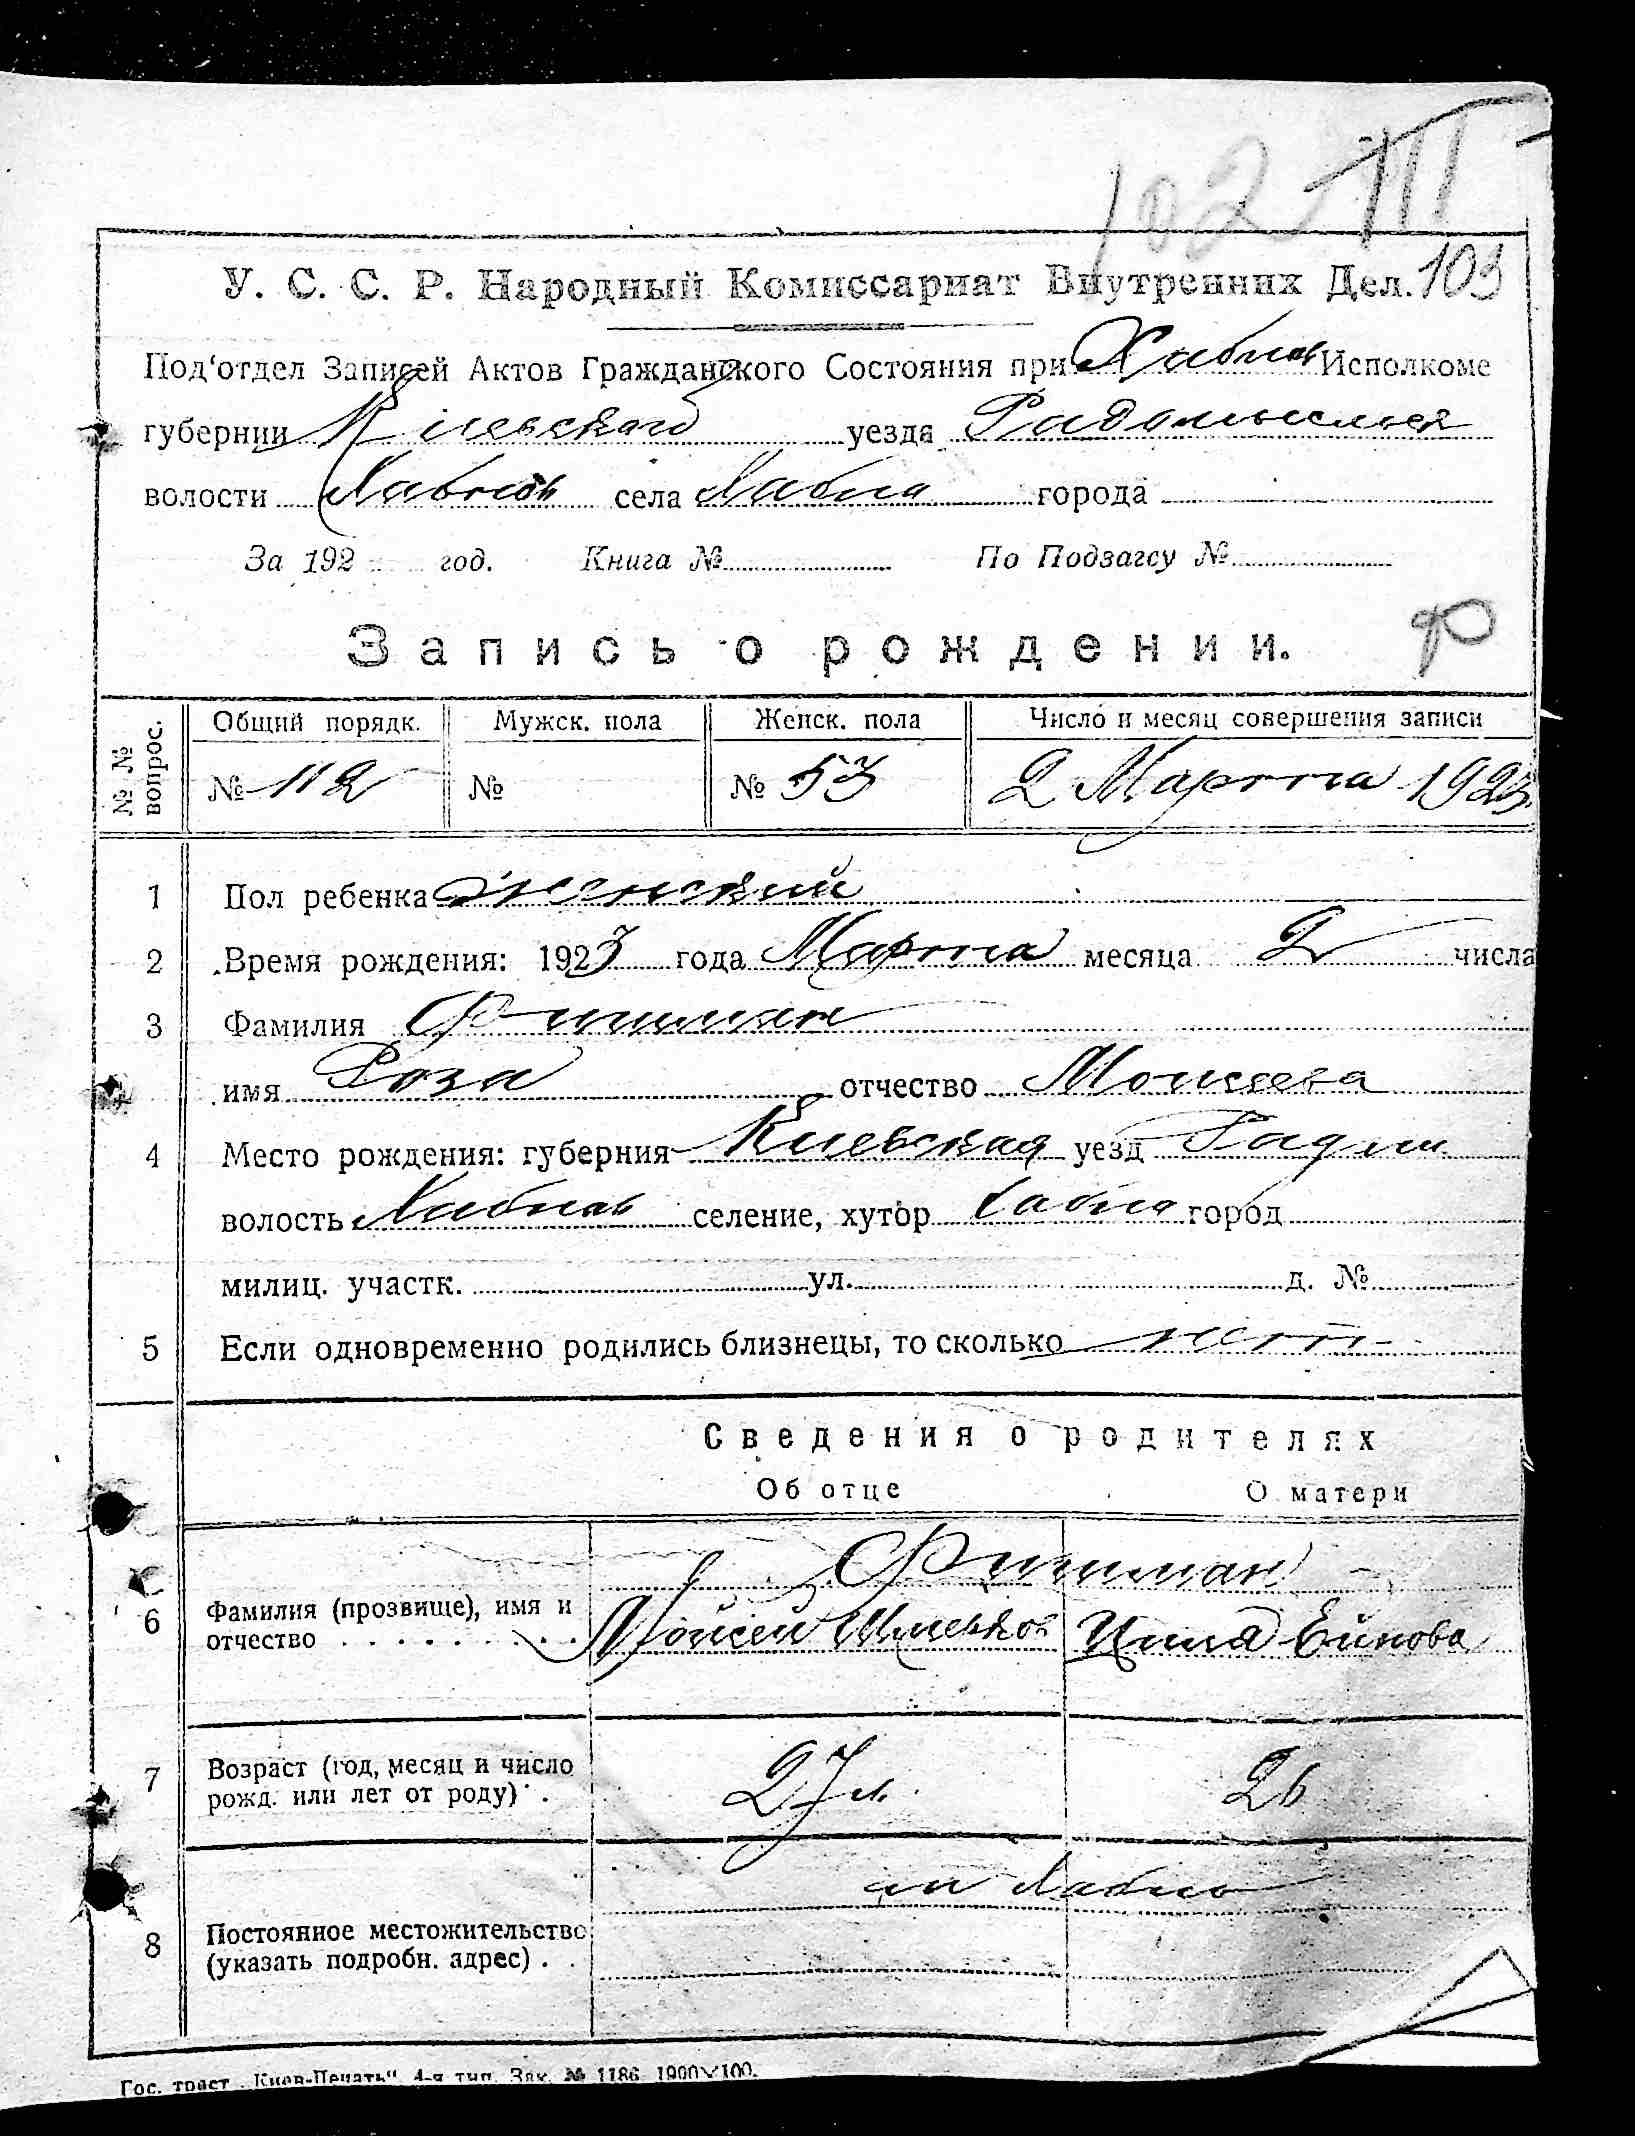 102 III
У. С. С. Р. Народный Комиссариат Внутренних Дел. 103
Под'отдел Записей Актов Гражданского Состояния при Хабнов Исполкоме
губернии Киевского уезда Радомысльск
волости Хабнов села Хабно города
За 192 год. Книга № По Подзагсу №
Запись о рождении.
№ № вопрос. Общий порядк. Мужск. пола Женск. пола Число и месяц совершения записи
№ 112 № № 53 2 Марта 1923
1 Пол ребенка женский
2 Время рождения: 1923 года Марта месяца 2 числа
3 Фамилия Фишман
имя Роза отчество Моисеева
4 Место рождения: губерния Киевская уезд Радом
волость Хабнов селение, хутор Хабно город
милиц. участк. ул. д. №
5 Если одновременно родились близнецы, то сколько нет
Сведения о родителях
Об отце О матери
Фишман
6 Фамилия (прозвище), имя и отчество . . . . . . . . Мойсей Шмельков Цилля
7 Возраст (год, месяц и число рожд. или лет от роду) . 27 л. 26
Хабно
8 Постоянное местожительство (указать подробн. адрес) . .
Гос. трест „Киев-Печать" 4-я тип. Зак. № 1186 1900×100.